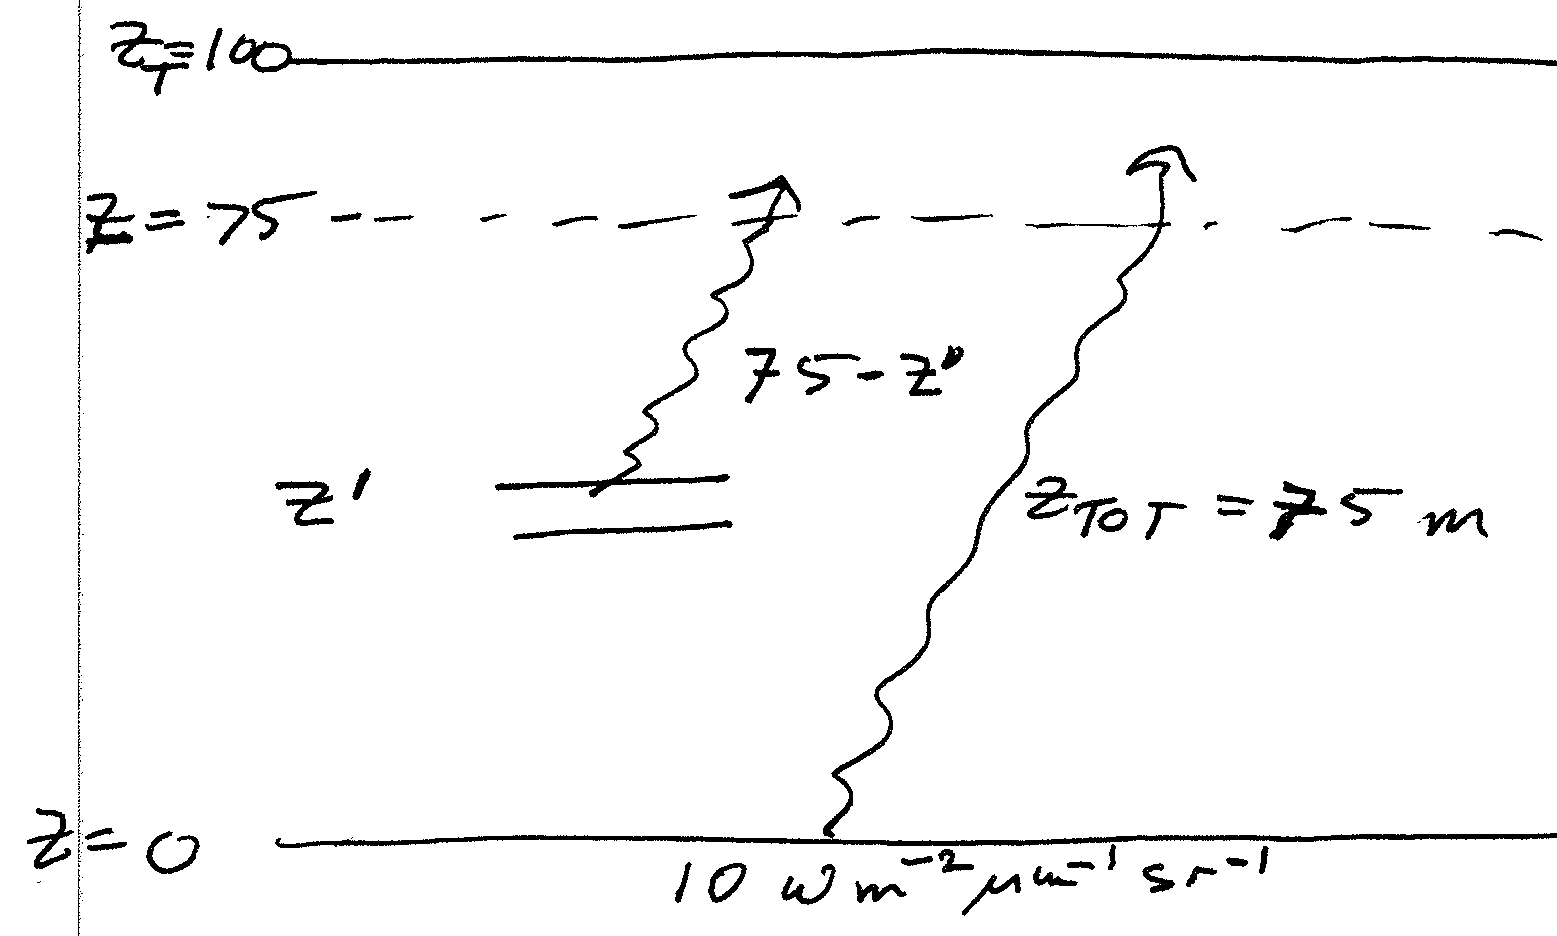 z_T=100
z = 75
75 - z'
z'
z_TOT = 75 m
z = 0
10 W m⁻² μm⁻¹ sr⁻¹